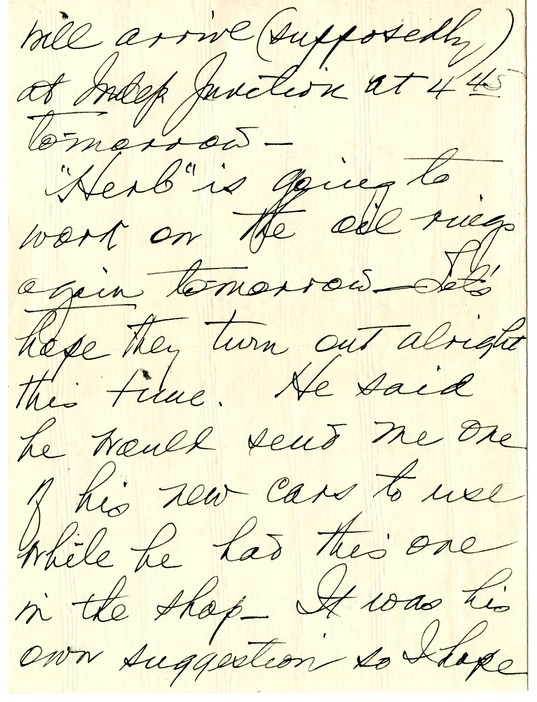 will arrive (supposedly)
at Indep Junction at 4 45
tomorrow —
"Herb" is going to
work on the oil rings
again tomorrow — Let's
hope they turn out alright
this time. He said
he would send me one
of his new cars to use
while he had this one
in the shop — It was his
own suggestion so I hope